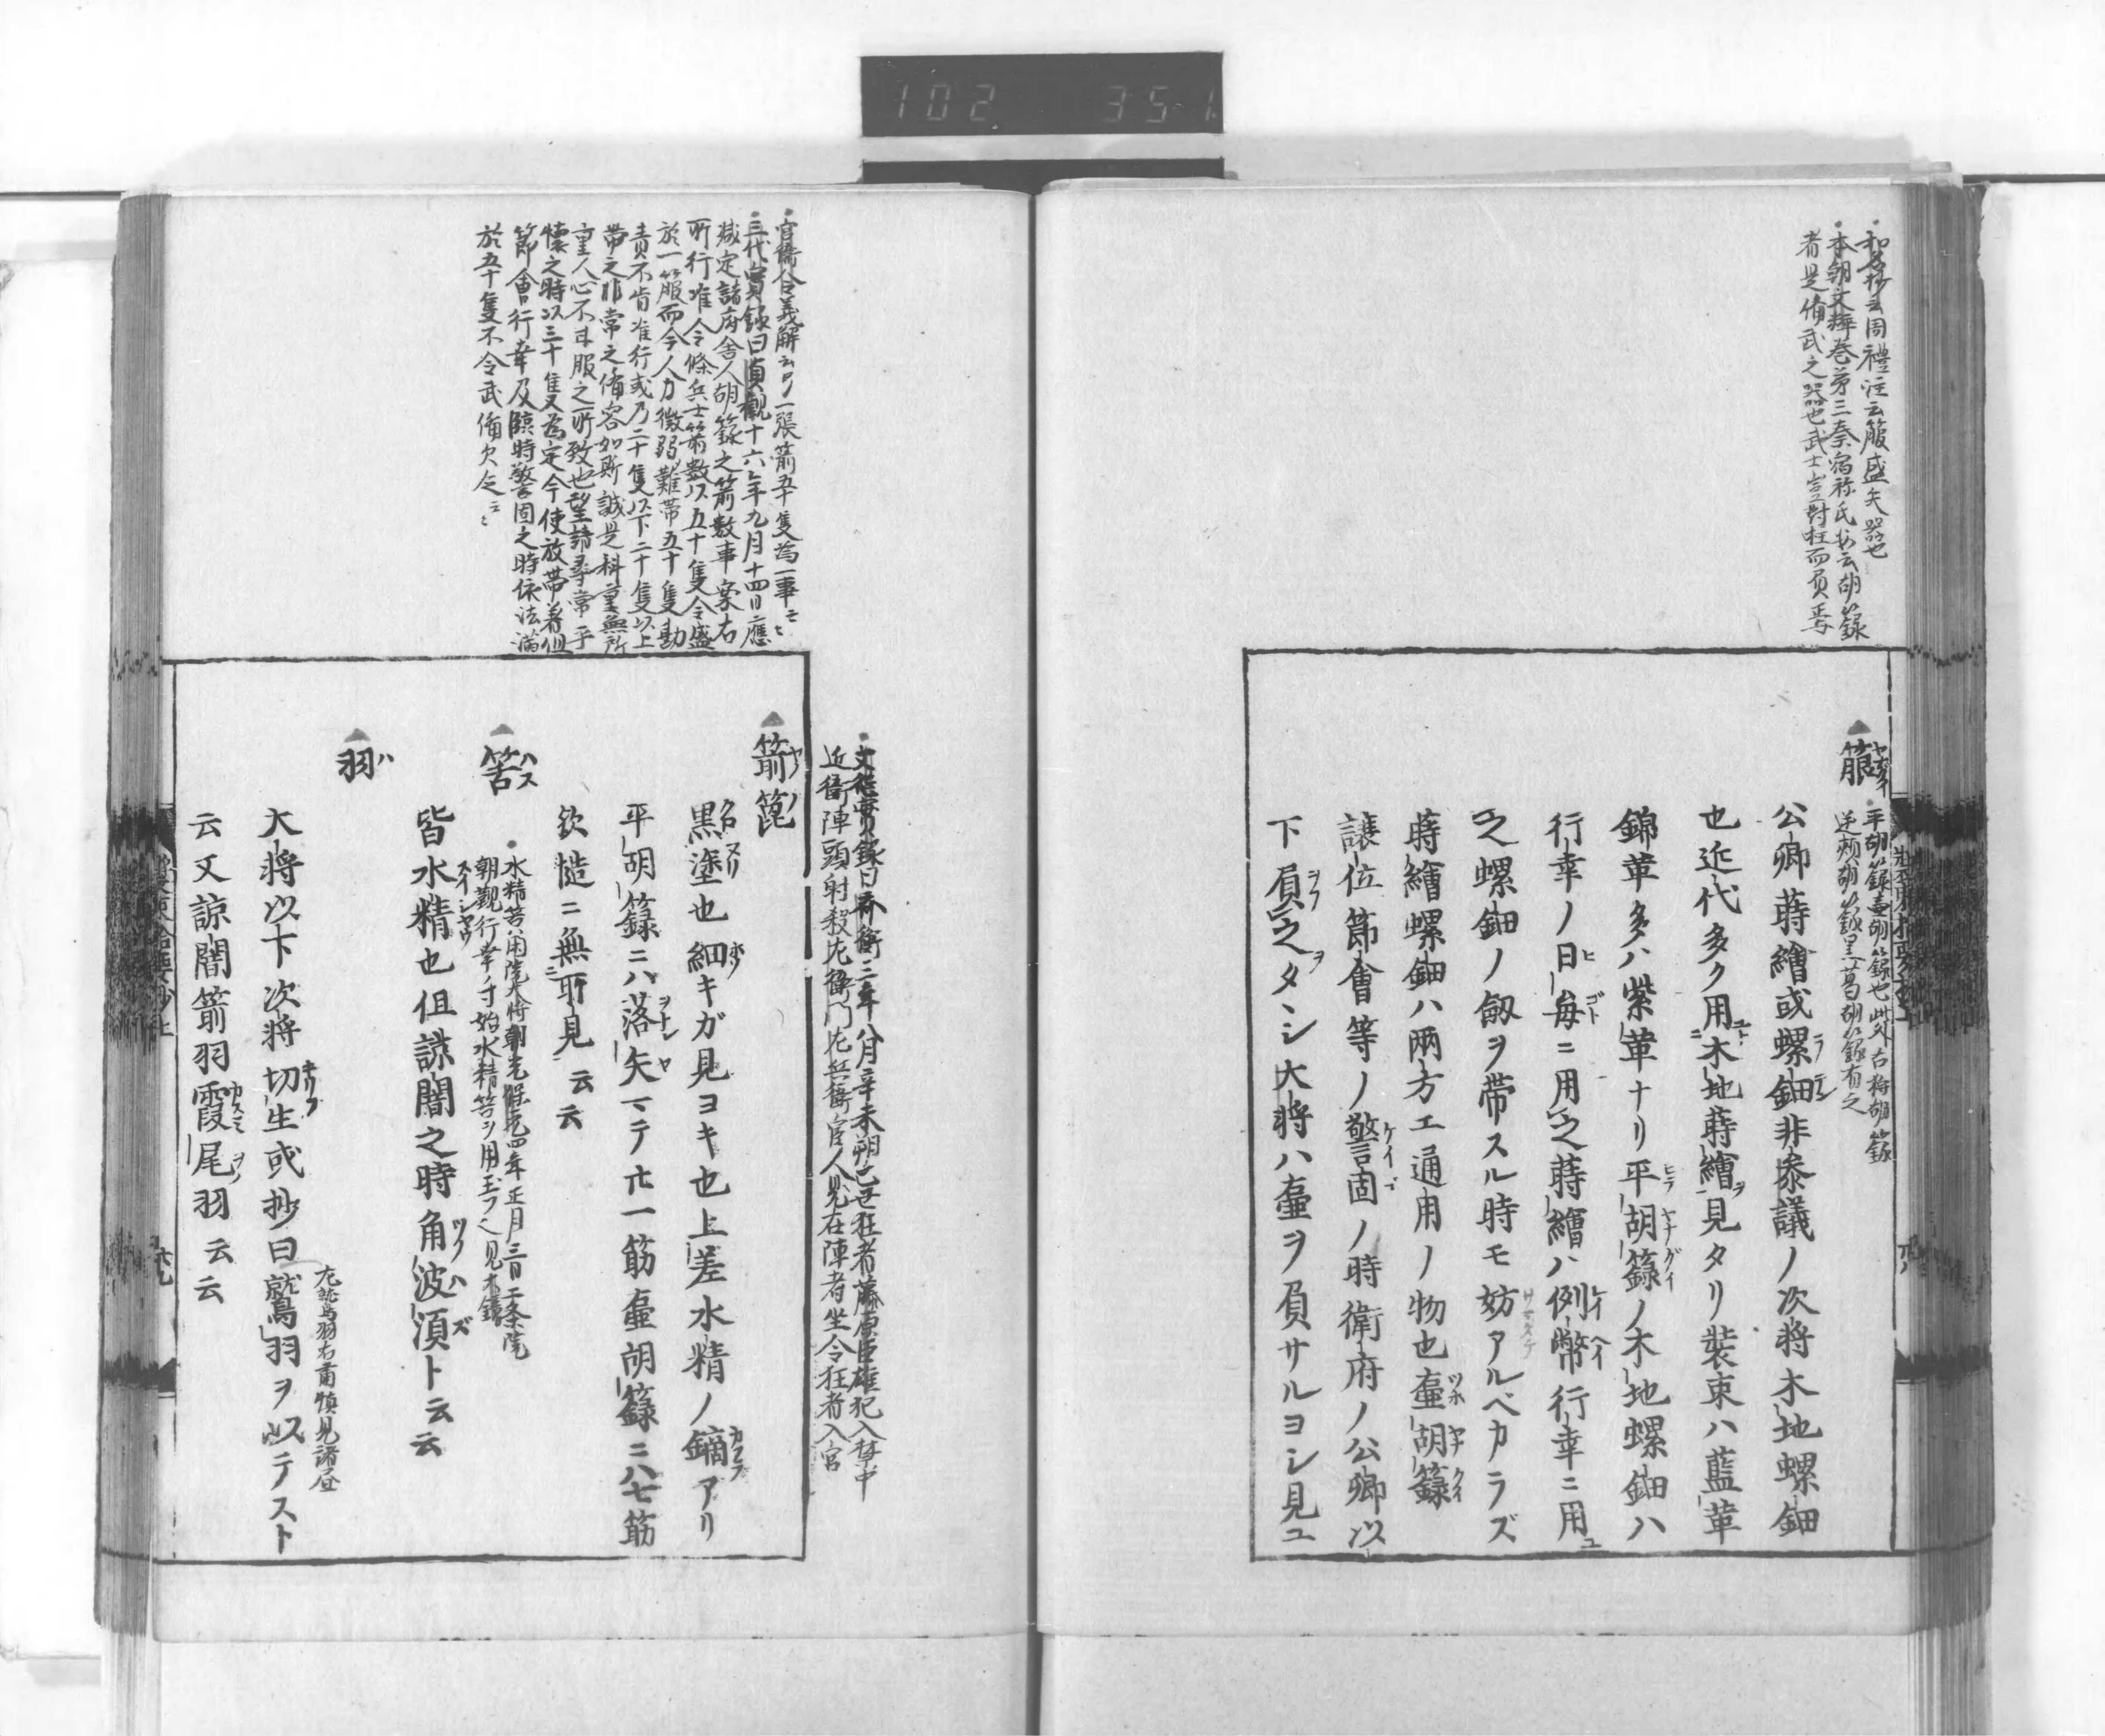 102 351
和名抄云周禮注云箙盛矢器也
本朝文粹卷第三秦宿祢氏安云胡籙
者是備武之器也武士
箙ヤナグイ
平胡籙壷胡籙也此外右府胡籙
逆頬胡籙黒葛胡籙有之
公卿蒔繪或螺鈿非叅議ノ次将木地螺鈿
也近代多ク用木地蒔繪ヲ見タリ装束ハ藍革
錦革多ハ紫革ナリ平胡籙ノ木地螺鈿ハ
行幸ノ日毎ニ用之蒔繪ハ例幣行幸ニ用ユ
之螺鈿ノ劔ヲ帯スル時モ妨アルベカラズ
蒔繪螺鈿ハ兩方エ通用ノ物也壷胡籙
譲位節會等ノ警固ノ時衛府ノ公卿以
下負之タシ大将ハ壷ヲ負サルヨシ見ユ
文徳實録曰齊衡三年八月辛未朔乙丗狂者藤原臣雄犯入禁中
近衛陣頭射殺左衛門左兵衛官人見在陣者坐令狂者入宮
官衛令義解云弓一張箭五十隻為一事云々
三代實録曰貞観十六年九月十四日應
减定諸府舎人胡籙之箭數事案右
所行准令條兵士箭數以五十隻令盛
於一箙而今人力微弱難帯五十隻勘
責不肯准行或乃三十隻以下二十隻以上
帯之非常之備容如斯誠是科重無所
重人心不甘服之所致也望請尋常平
懐之時以三十隻又為定今使放帯着但
節會行幸及臨時警固之時依法滿
於五十隻不令武備欠乏云々
箭箆ヤノ
黒塗也細キガ見ヨキ也上差水精ノ鏑アリ
平胡籙ニハ落矢マテ廿一筋壷胡籙ニハ七筋
欤慥ニ無所見云云
筈ハス
水精筈用
朝覲行幸ノ寸始水精筈ヲ用玉フ之見木鏡
皆水精也但諒闇之時角波湏ト云云
羽ハ
左鷲羽右肅慎見諸
大将以下次将切生或抄曰鷲羽ヲ以テスト
云又諒闇箭羽霞尾羽云云